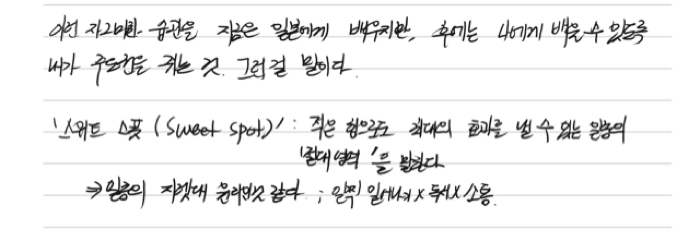 이런 자그마한 습관을 지금은 일본에게 배우지만, 후에는 나에게 배울 수 있도록
내가 주도권을 쥐는 것. 그런 걸 말이다.
'스위트 스팟 (Sweet spot)' : 적은 힘으로도 최대의 효과를 낼 수 있는 일종의
'절대 영역'을 말한다.
⇒ 일종의 지렛대 원리인것 같다 ; 일찍 일어나기 x 독서 x 소통.